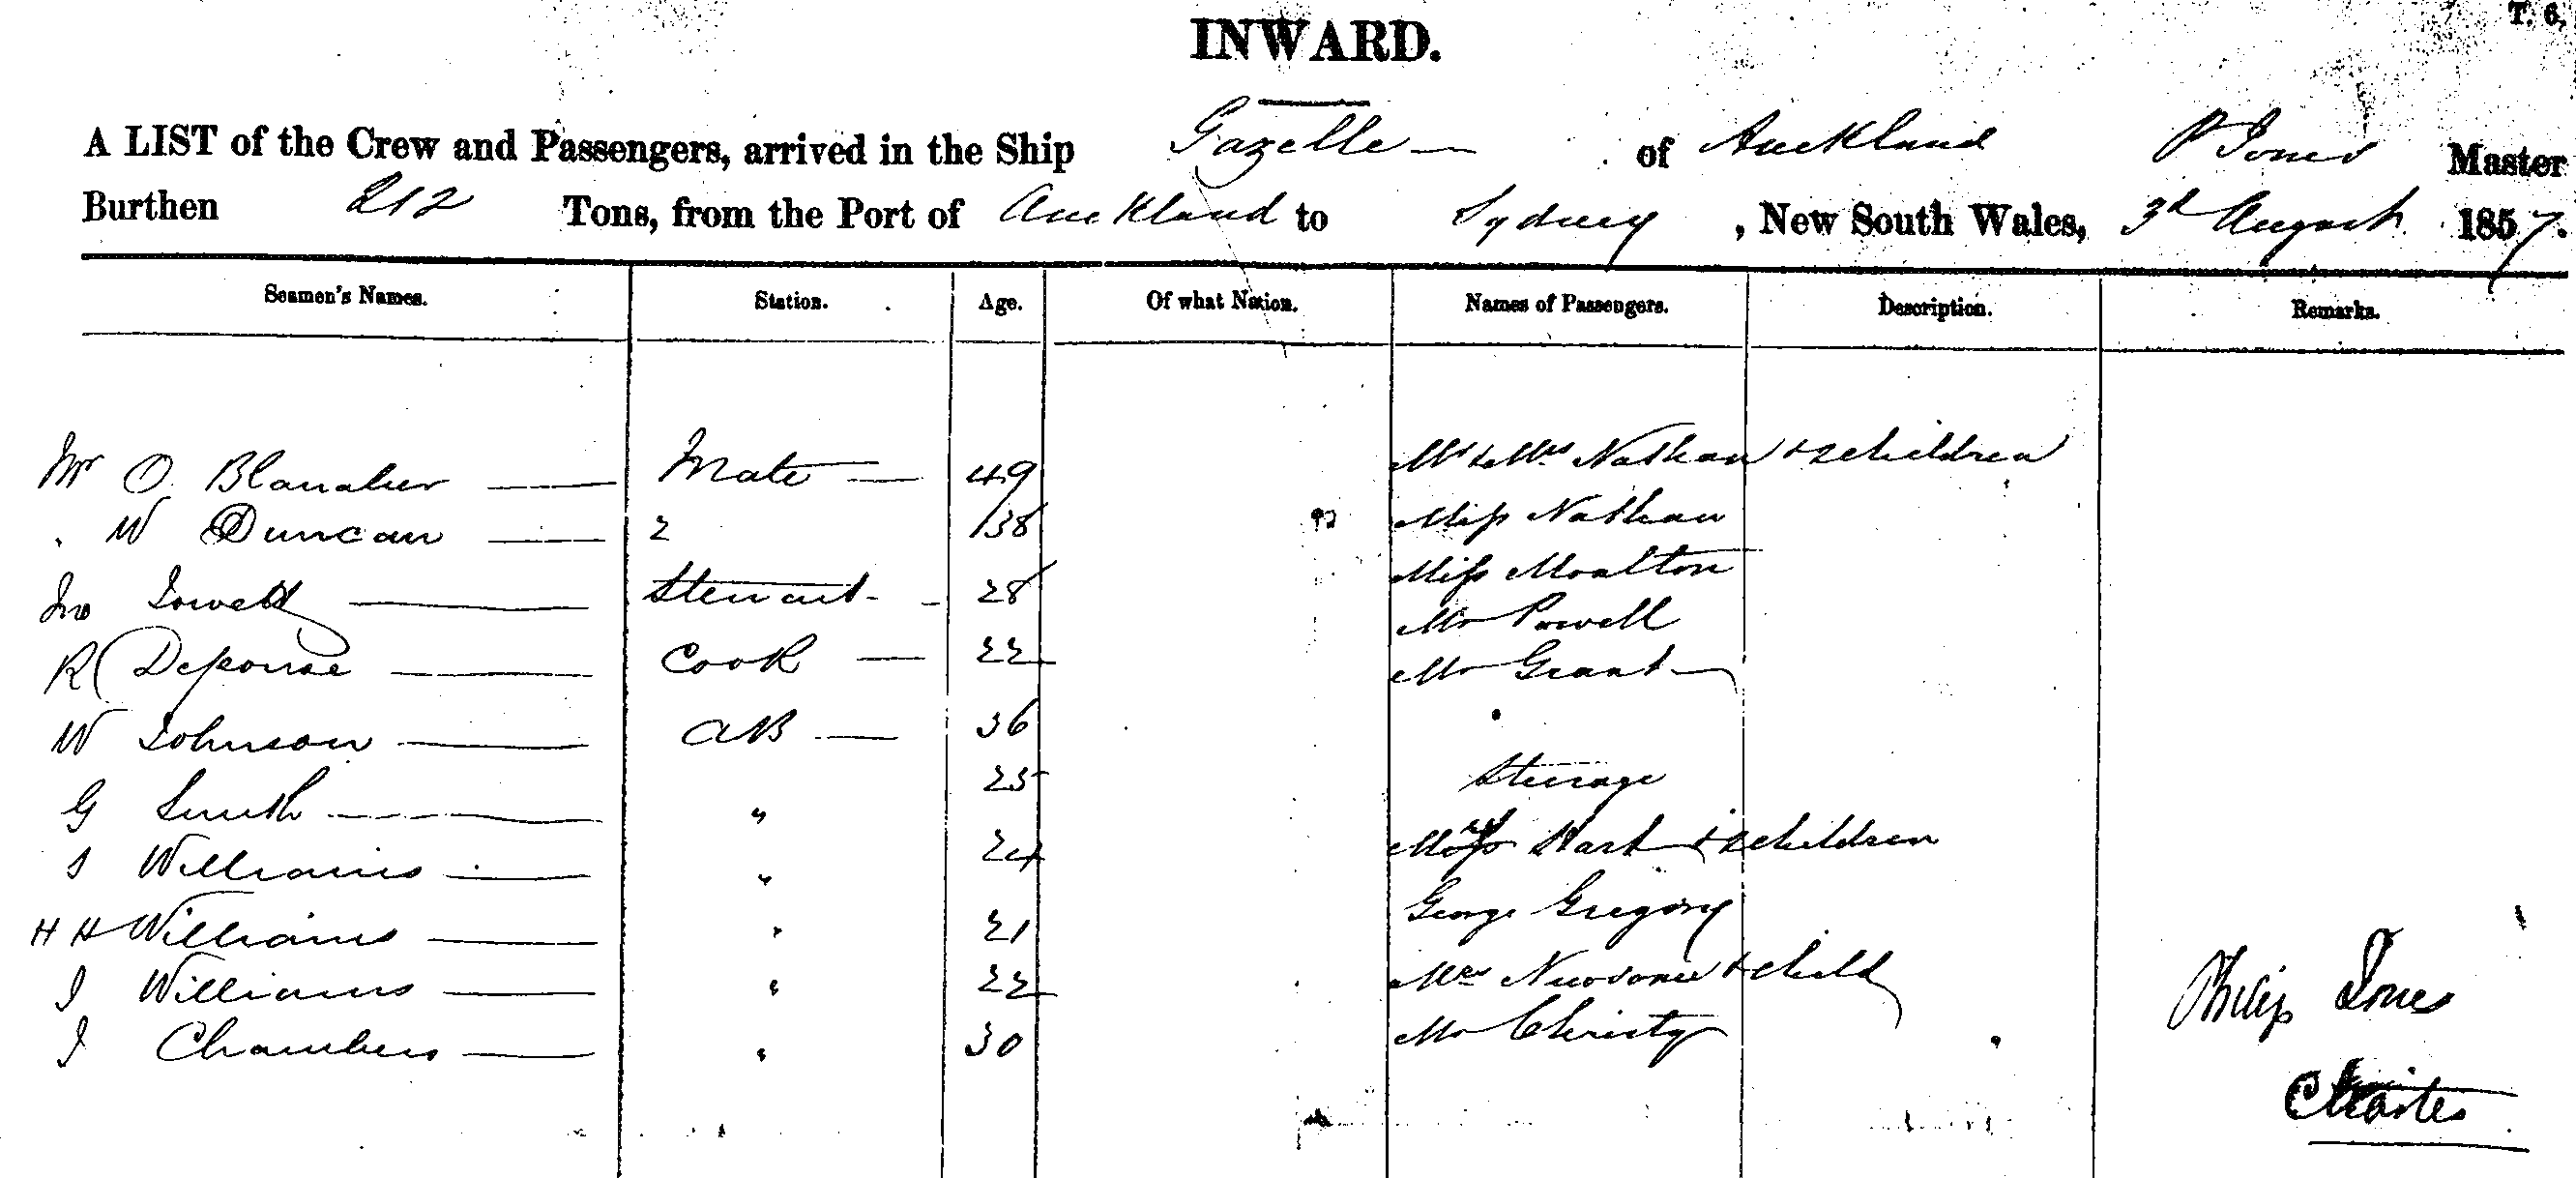 T. 6.
INWARD.
A LIST of the Crew and Passengers, arrived in the Ship Gazelle — of Auckland P Jones Master
Burthen 212 Tons, from the Port of Auckland to Sydney, New South Wales, 3d August 1857.
Seamen's Names. Station. Age. Of what Nation. Names of Passengers. Description. Remarks.
Mr O. Mate 49 Mr & Mrs Nathan + 2 children
" W Duncan 2 38 Miss Nathan
Jno Stewart 28 Miss Moalton
Mr Powell
R Cook 22 Mr Grant
W Johnson AB 36
G Smith " 25 Steerage
J Williams " 24 Mrs Hart + 2 children
H H Williams " 21 George Gregory
J Williams " 22 Mrs Newsome + child
J Chambers " 30 Mr Christy
Philip Jones